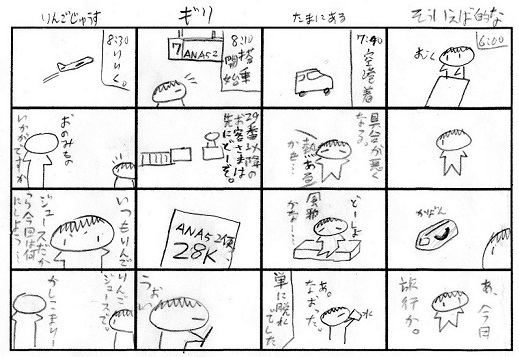 そういえば的な
6:00
かばん
あ、今日
旅行か。
たまにある
7:40
空港着
具合が悪く
なる。
熱ある
かも…
どーしよ
風邪
かな…
あ。
なおった。
水
単に脱水でした
ギリ
8:10
搭乗
開始
7 ANA52
29番以降の
お客さまは
先にどーぞ。
ANA52便
28K
りんごじゅうす
8:30
りりく。
おのみもの
いかがですか
いつもりんご
ジュースだか
ら今回は何
にしよう…
りんご
ジュースで。
かしこまりー!